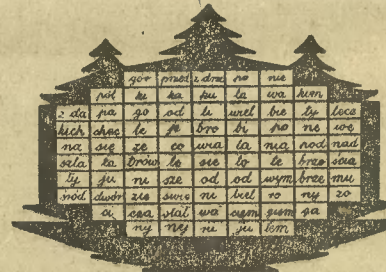 gór przed z drze po nie
pół ku ka pu la wa kim
z da pa go od li uwel bie ty lece
kich chęc le je bro bi po ne wę
na się ze co wia la nią pod nad
szla ka trów le sie lo te brze
ty ju ni sze od od wym brze mu
dwór zie świę ni biel ro ny zo
ci cza stał wa ciem giem ga
ny nej ni ju lem